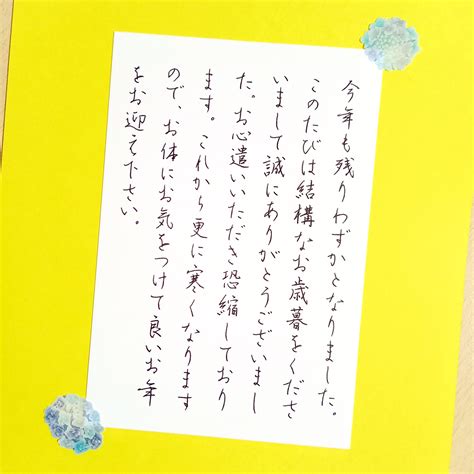 今年も残りわずかとなりました。
このたびは結構なお歳暮をくださ
いまして誠にありがとうございまし
た。お心遣いいただき恐縮しており
ます。これから更に寒くなります
ので、お体にお気をつけて良いお年
をお迎え下さい。